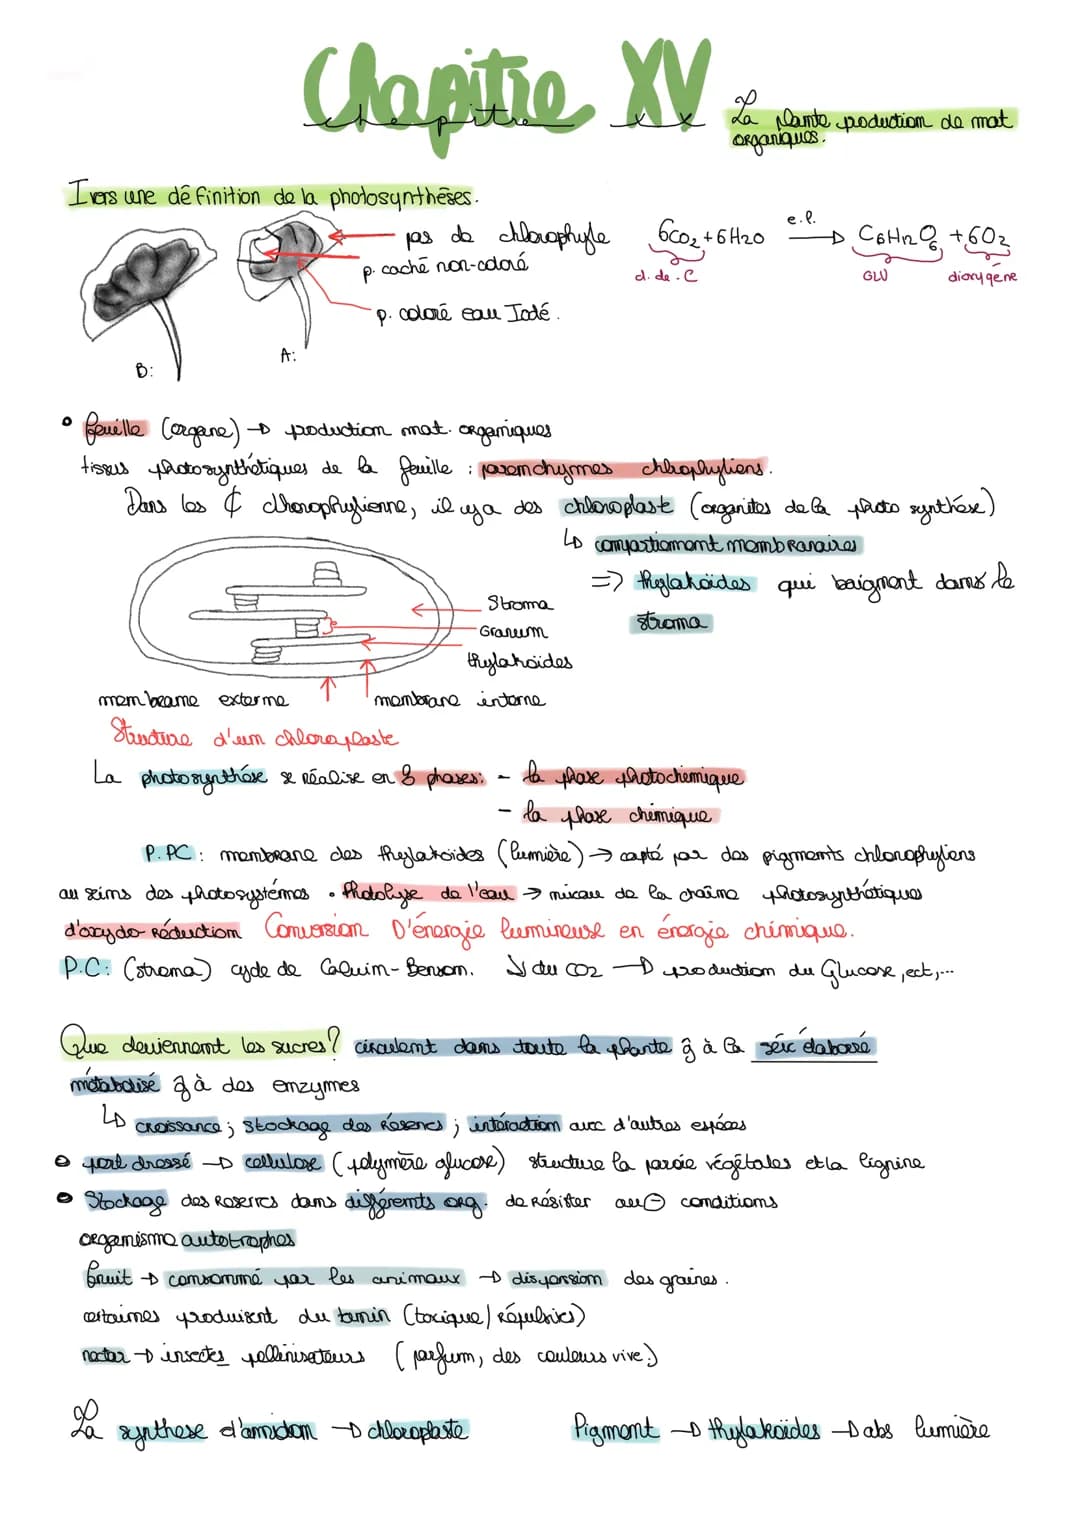 Chapitre XV
chapitre XV
La plante production de mat
organiques.
I vers une définition de la photosynthèses.
pas de chlorophyle
p. caché non-coloré
p. coloré eau Iodé.
B:
A:
6CO2 + 6H2O e.l. → C6H12O6 + 6O2
d. de . C
GLU
dioxygène
• feuille (organe) → production mat. organiques
tissus photosynthétiques de la feuille : paremchymes chlrophyliens.
Dans les ₵ chlorophylienne, il y a des chloroplaste (organites de la photo synthèse)
↳ compartiement membranaires
=> thylakoïdes qui baignent dans le
stroma
Stroma
Granum
thylakoïdes
membrane externe
membrane interne
Structure d'un chloroplaste
La photosynthèse se réalise en phases: - la phase photochimique
- la phase chimique
P.PC : membrane des thylakoïdes (lumière) → capté par des pigments chlorophyliens
au seins des photosystèmes . Photolyse de l'eau → niveau de la chaîne photosynthétiques
d'oxydo-réduction Conversion D'énergie lumineuse en énergie chimique.
P.C: (stroma) cycle de Calvin-Benson. ↘ du CO2 → production du Glucose, ect,...
Que deviennent les sucres? circulent dans toute la plante g à la sève élaborée
métabolisé g à des enzymes
↳ croissance ; stockage des réserves ; intéraction avec d'autres espèces
• port dressé → cellulose (polymère glucose) structure la paroie végétales et la lignine
• Stockage des reserves dans différents org. de résister au ⊖ conditions
organisme autotrophes
fruit → consommé par les animaux → dispersion des graines.
certaines produisent du tanin (toxique/répulsives)
nectar → insectes pollinisateurs (parfum, des couleurs vive.)
La synthese d'amidon → chloroplaste
Pigment → thylakoïdes → abs lumière